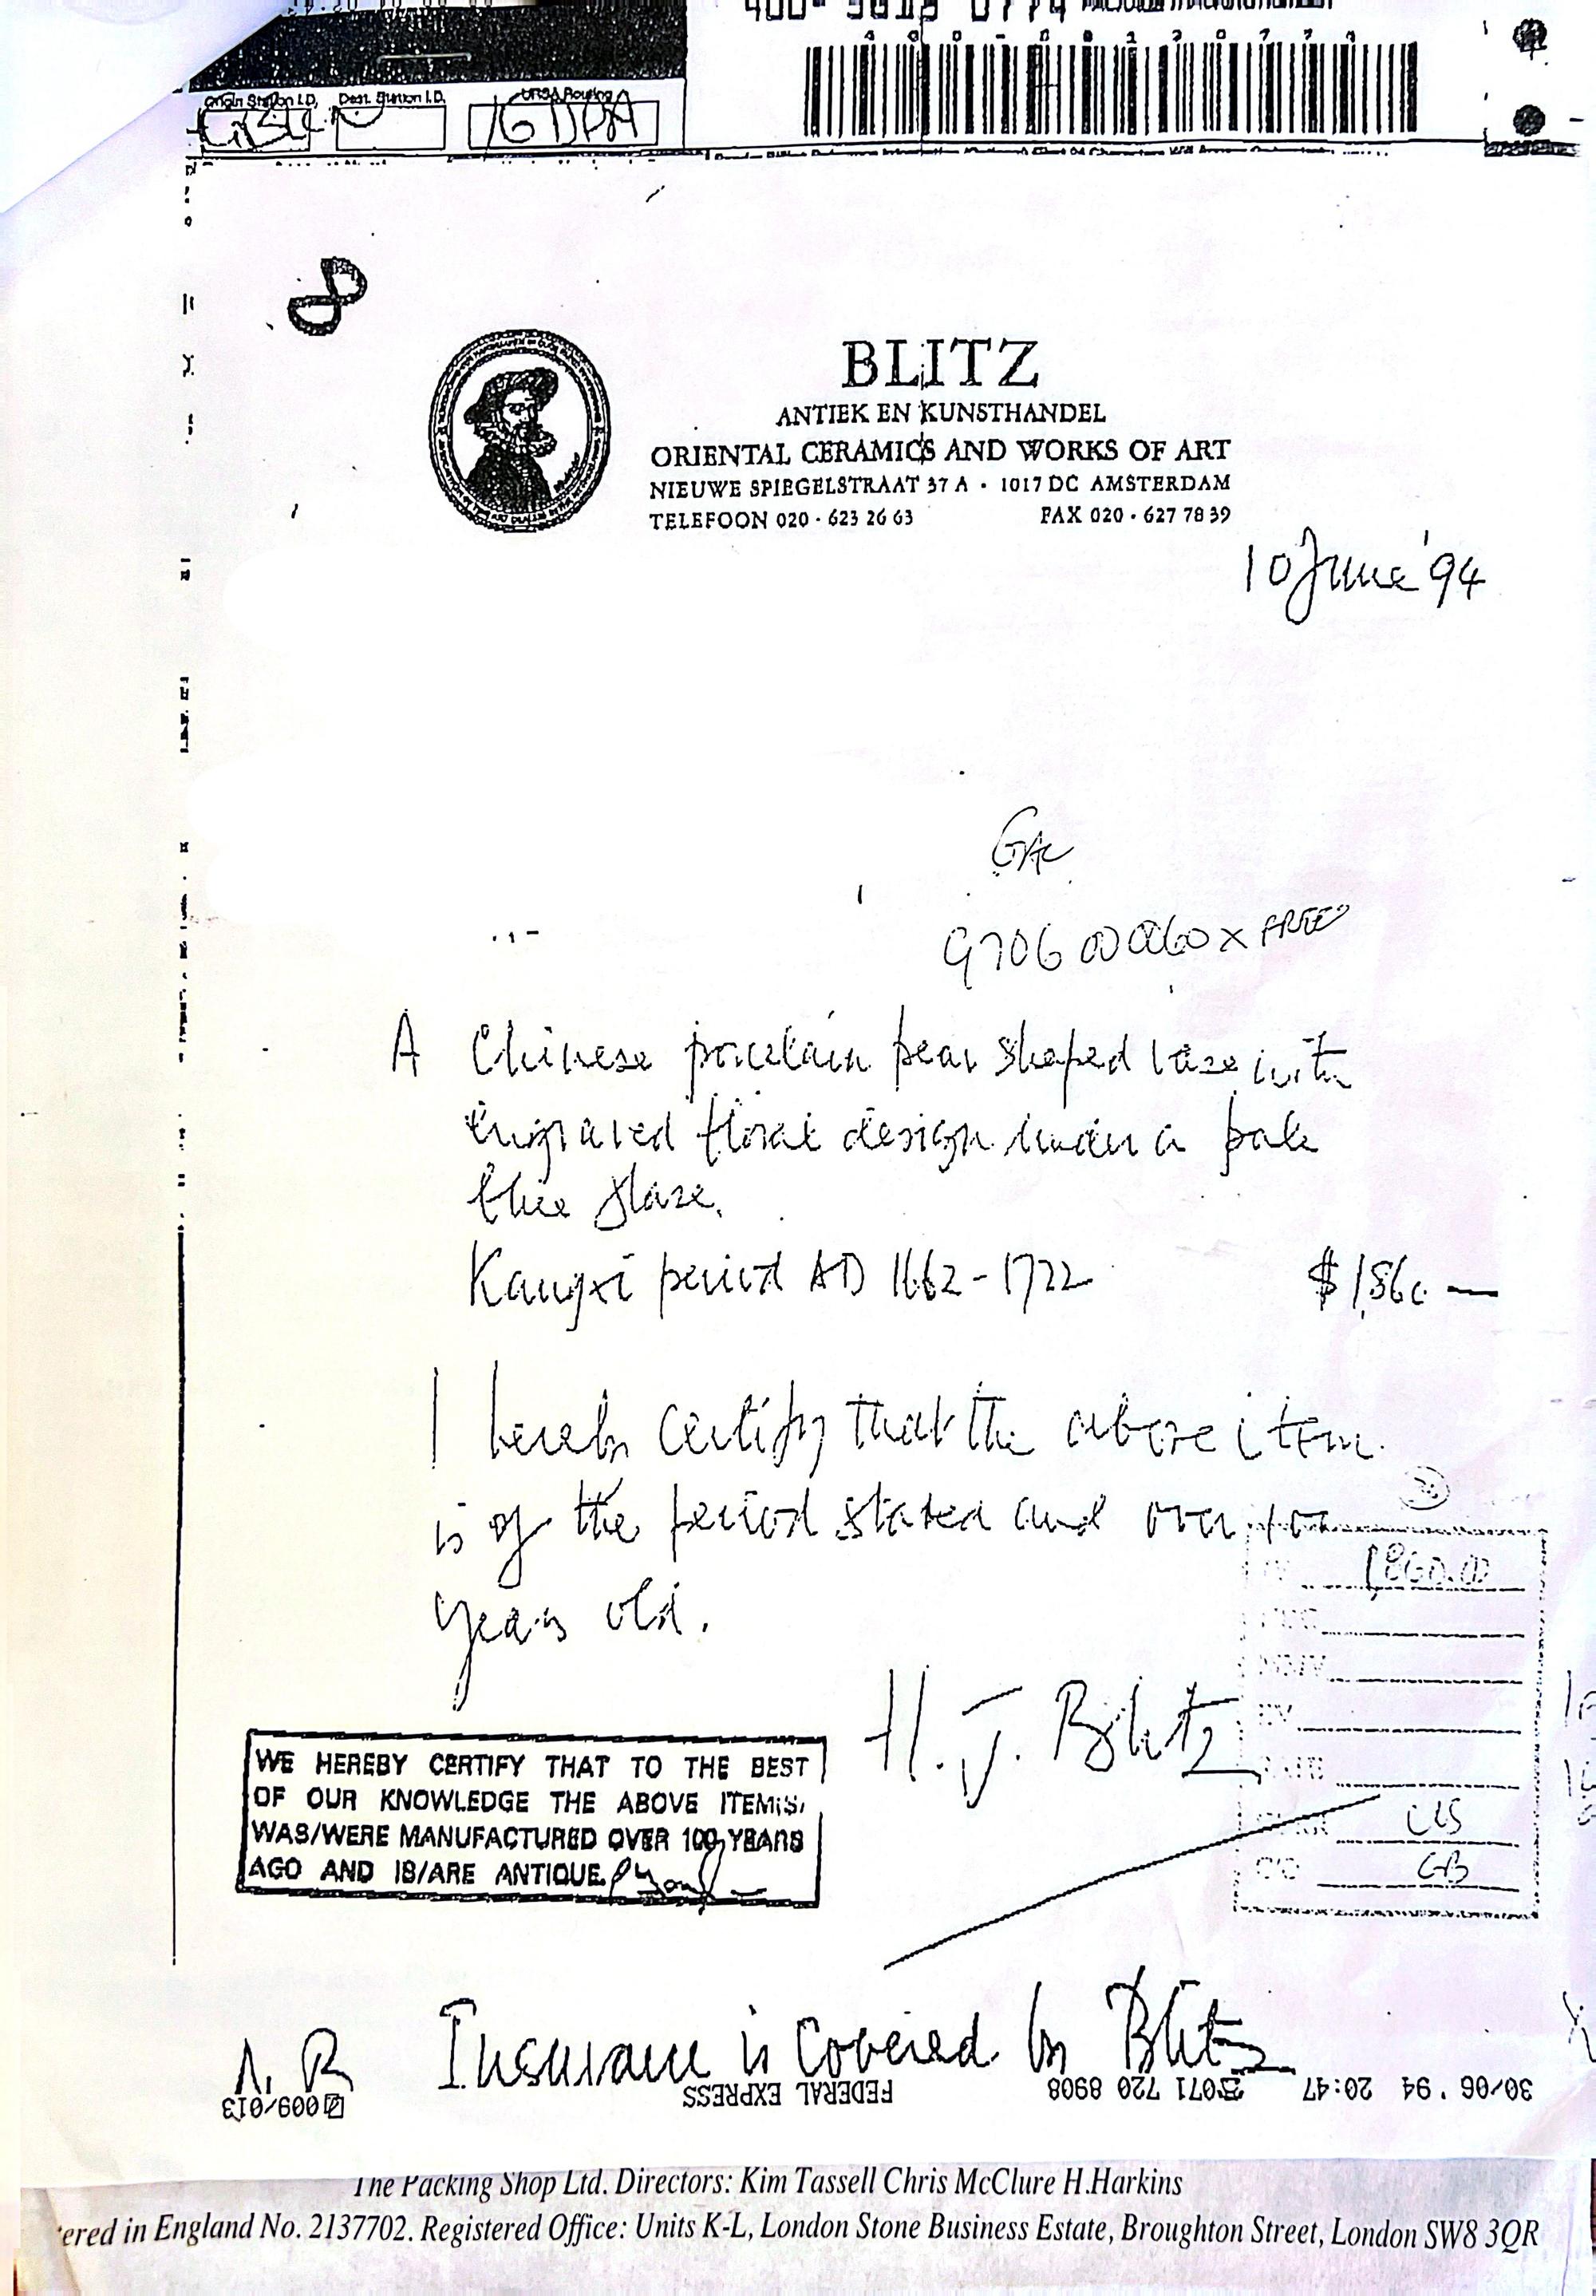 Origin Station I.D. Dest. Station I.D. URSA Routing
8
BLITZ
ANTIEK EN KUNSTHANDEL
ORIENTAL CERAMICS AND WORKS OF ART
NIEUWE SPIEGELSTRAAT 37 A · 1017 DC AMSTERDAM
TELEFOON 020 · 623 26 63 FAX 020 · 627 78 39
10 June '94
FREE
A Chinese porcelain pear shaped vase with
engraved floral design under a pale
blue glaze.
Kangxi period AD 1662-1722 $1,860 —
I hereby certify that the above item
is of the period stated and over 100
years old.
1,860.00
H. J. Blitz
WE HEREBY CERTIFY THAT TO THE BEST
OF OUR KNOWLEDGE THE ABOVE ITEM(S)
WAS/WERE MANUFACTURED OVER 100 YEARS
AGO AND IS/ARE ANTIQUE.
US
CO GB
Insurance is covered by Blitz
30/06 '94 20:47 071 720 8908 FEDERAL EXPRESS 009/013
The Packing Shop Ltd. Directors: Kim Tassell Chris McClure H.Harkins
ered in England No. 2137702. Registered Office: Units K-L, London Stone Business Estate, Broughton Street, London SW8 3QR